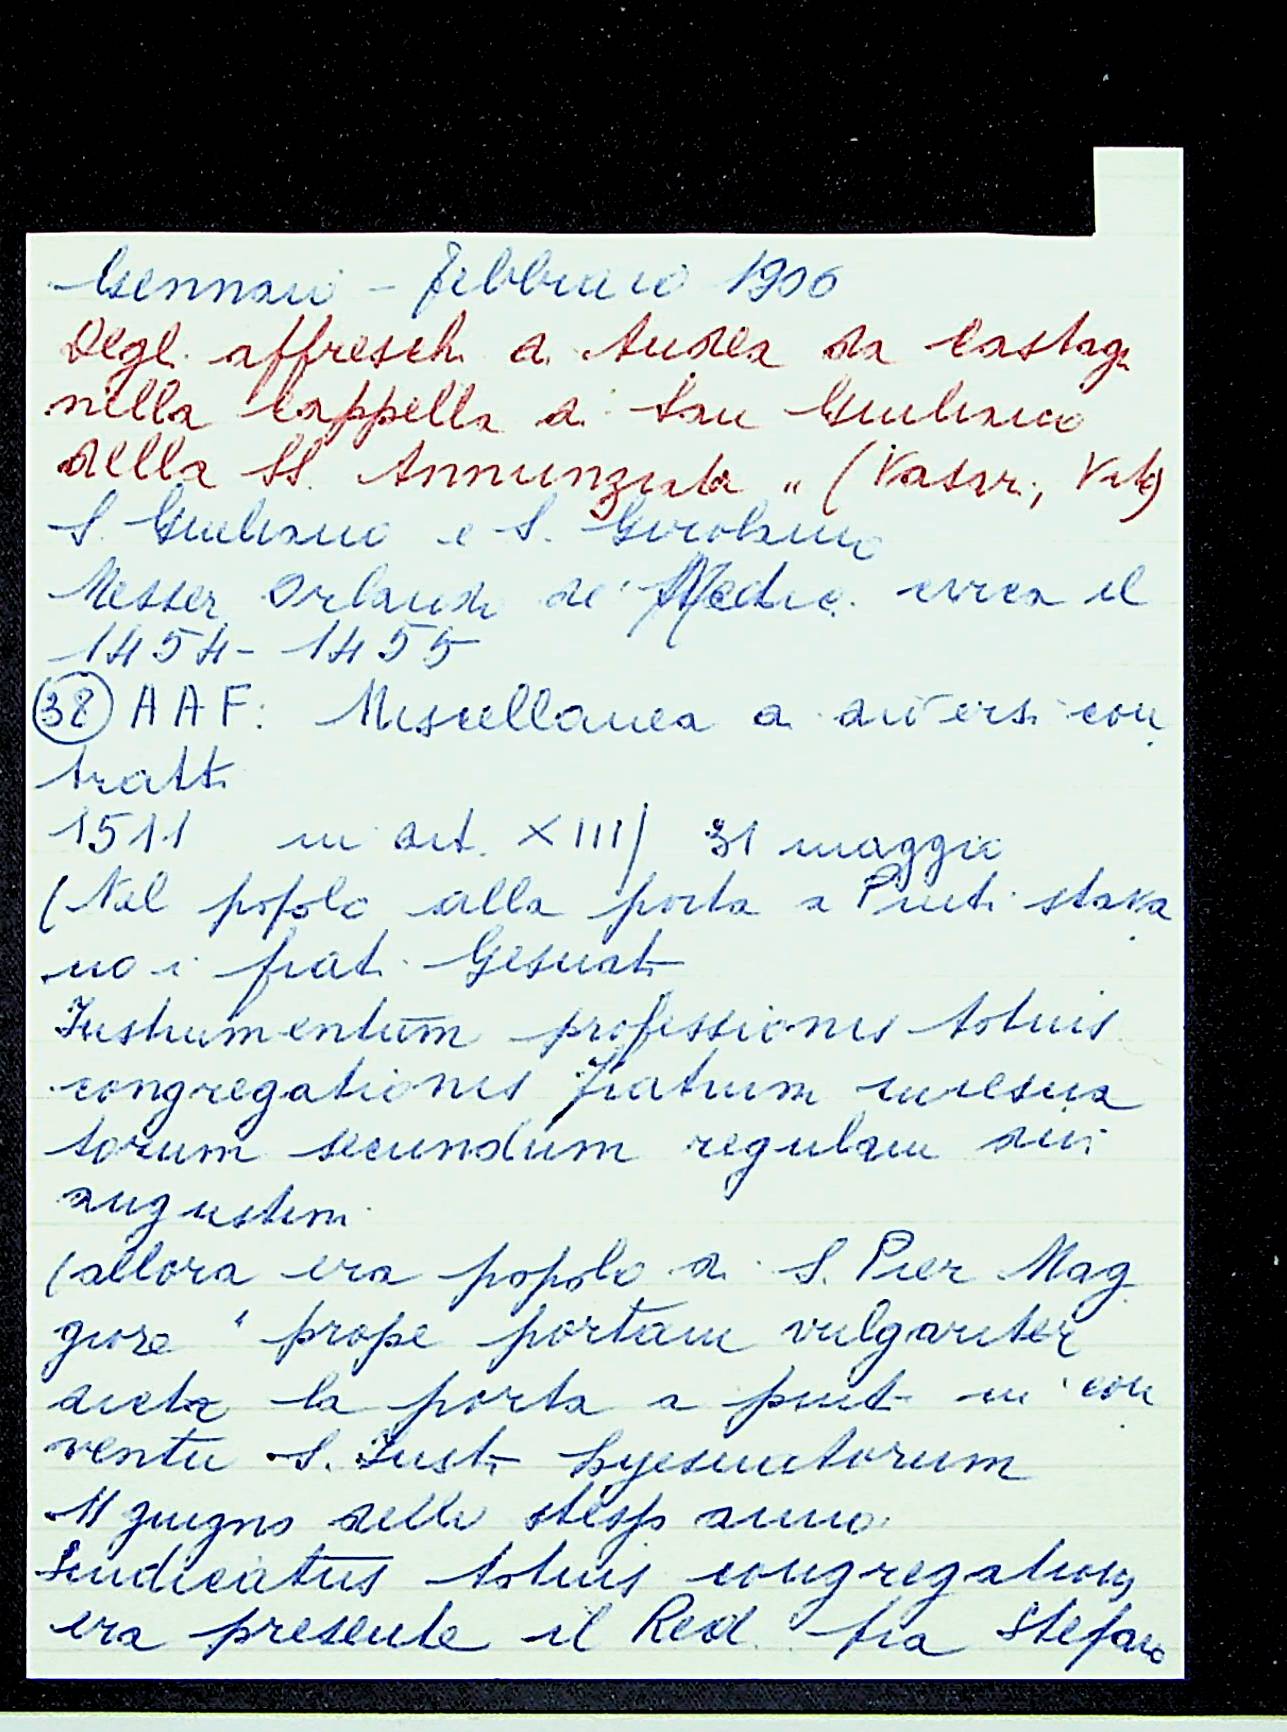 Gennaio - Febbraio 1906
Degli affreschi di Andrea da Castag.
nella Cappella di San Giuliano
della SS. Annunziata " (Vasari, Vite)
S. Giuliano e S. Girolamo
Messer Orlando de' Medici circa il
1454-1455
(38) AAF: Miscellanea di diversi con
tratti
1511 in art. XIII) 31 maggio
(Nel popolo alla porta a Pinti stava
no i frati Gesuati
Instrumentum professionis totius
congregationis fratrum
torum secundum regulam divi
augustini
(allora era popolo di S. Pier Mag
giore " prope portam vulgariter
dicta la porta a pinti in con
ventu S. Iusti hyesuatorum
11 giugno dello stesso anno
Sindicatus totius congregationis
era presente il Red. fra Stefano